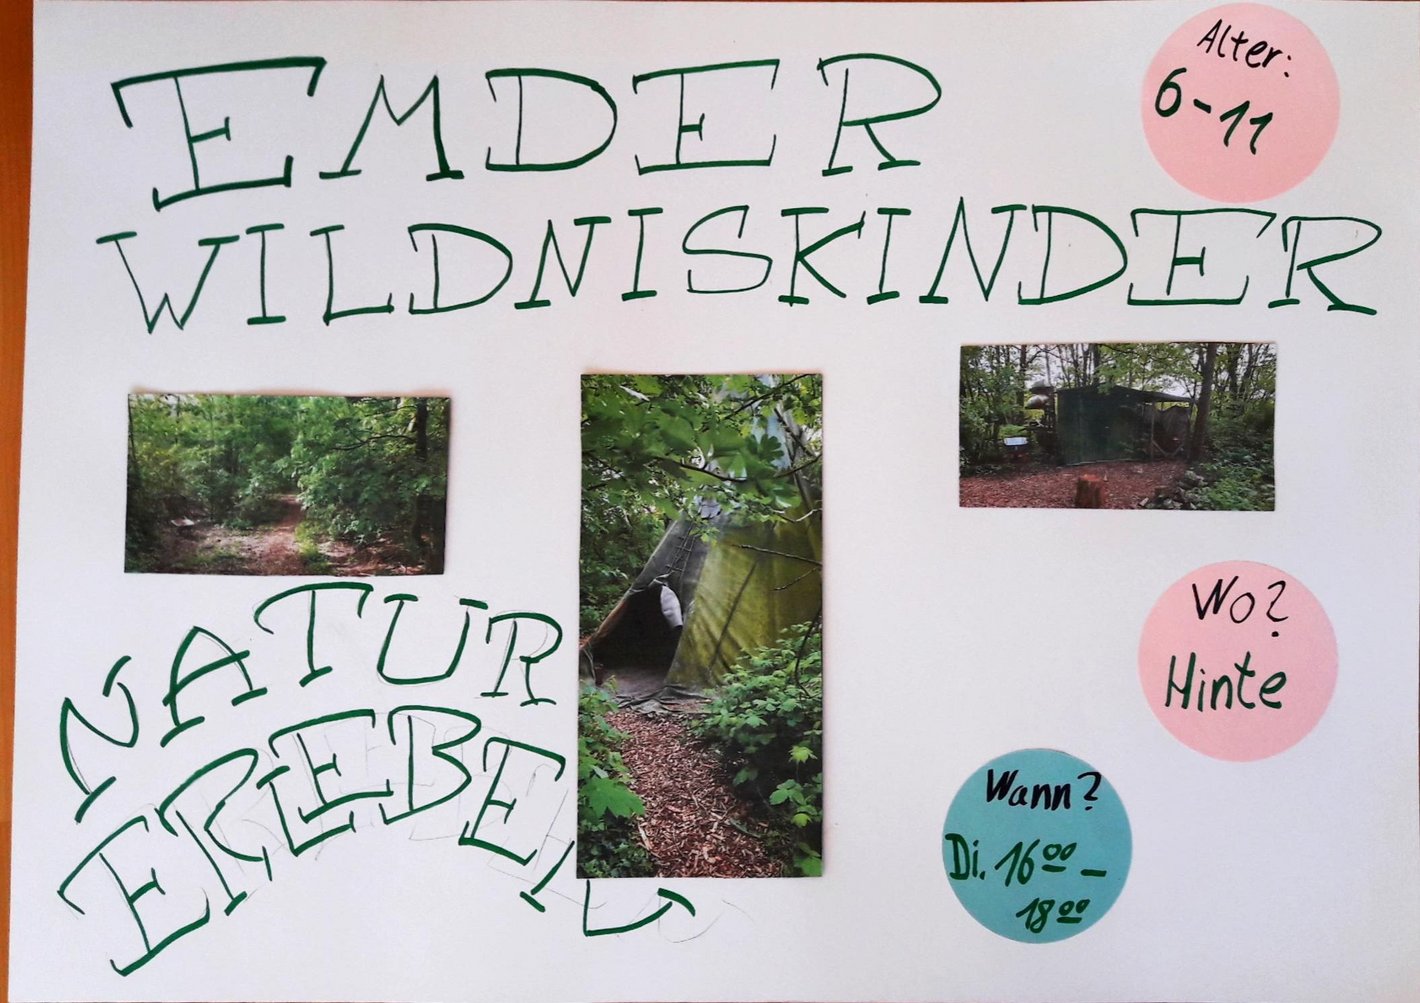 EMDER
WILDNISKINDER
Alter:
6-11
NATUR
ERLEBEN
Wo?
Hinte
Wann?
Di. 16⁰⁰ –
18⁰⁰